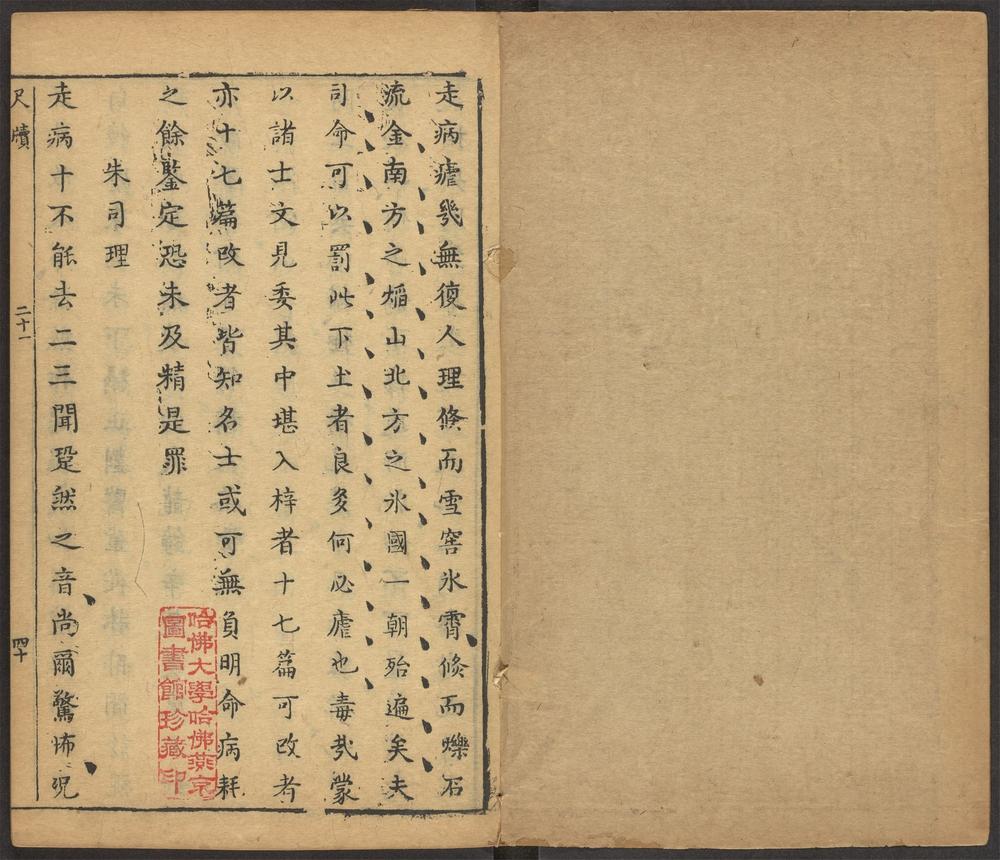 走病瘧幾無復人理倏而雪窖氷霄倏而爍石
流金南方之熖山北方之氷國一朝殆遍矣夫
司命可以罰此下土者良多何必瘧也毒哉蒙
以諸士文見委其中堪入梓者十七篇可改者
亦十七篇改者皆知名士或可無負明命病耗
之餘鑒定恐未及精是罪
朱司理
走病十不能去二三聞跫然之音尚爾驚怖况
尺牘
二十一
四十
哈佛大學哈佛燕京
圖書館珍藏印